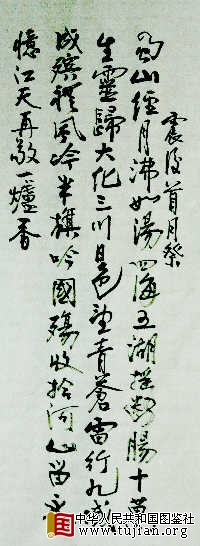 震後首月祭
蜀山經月沸如湯四海五湖斷腸十萬
生靈歸大化三川日色望青蒼雷行九域
成殯禮風半旗吟國殤收拾河山留永
憶江天再敬一爐香
中华人民共和国图鉴社
http://www.tujian.org